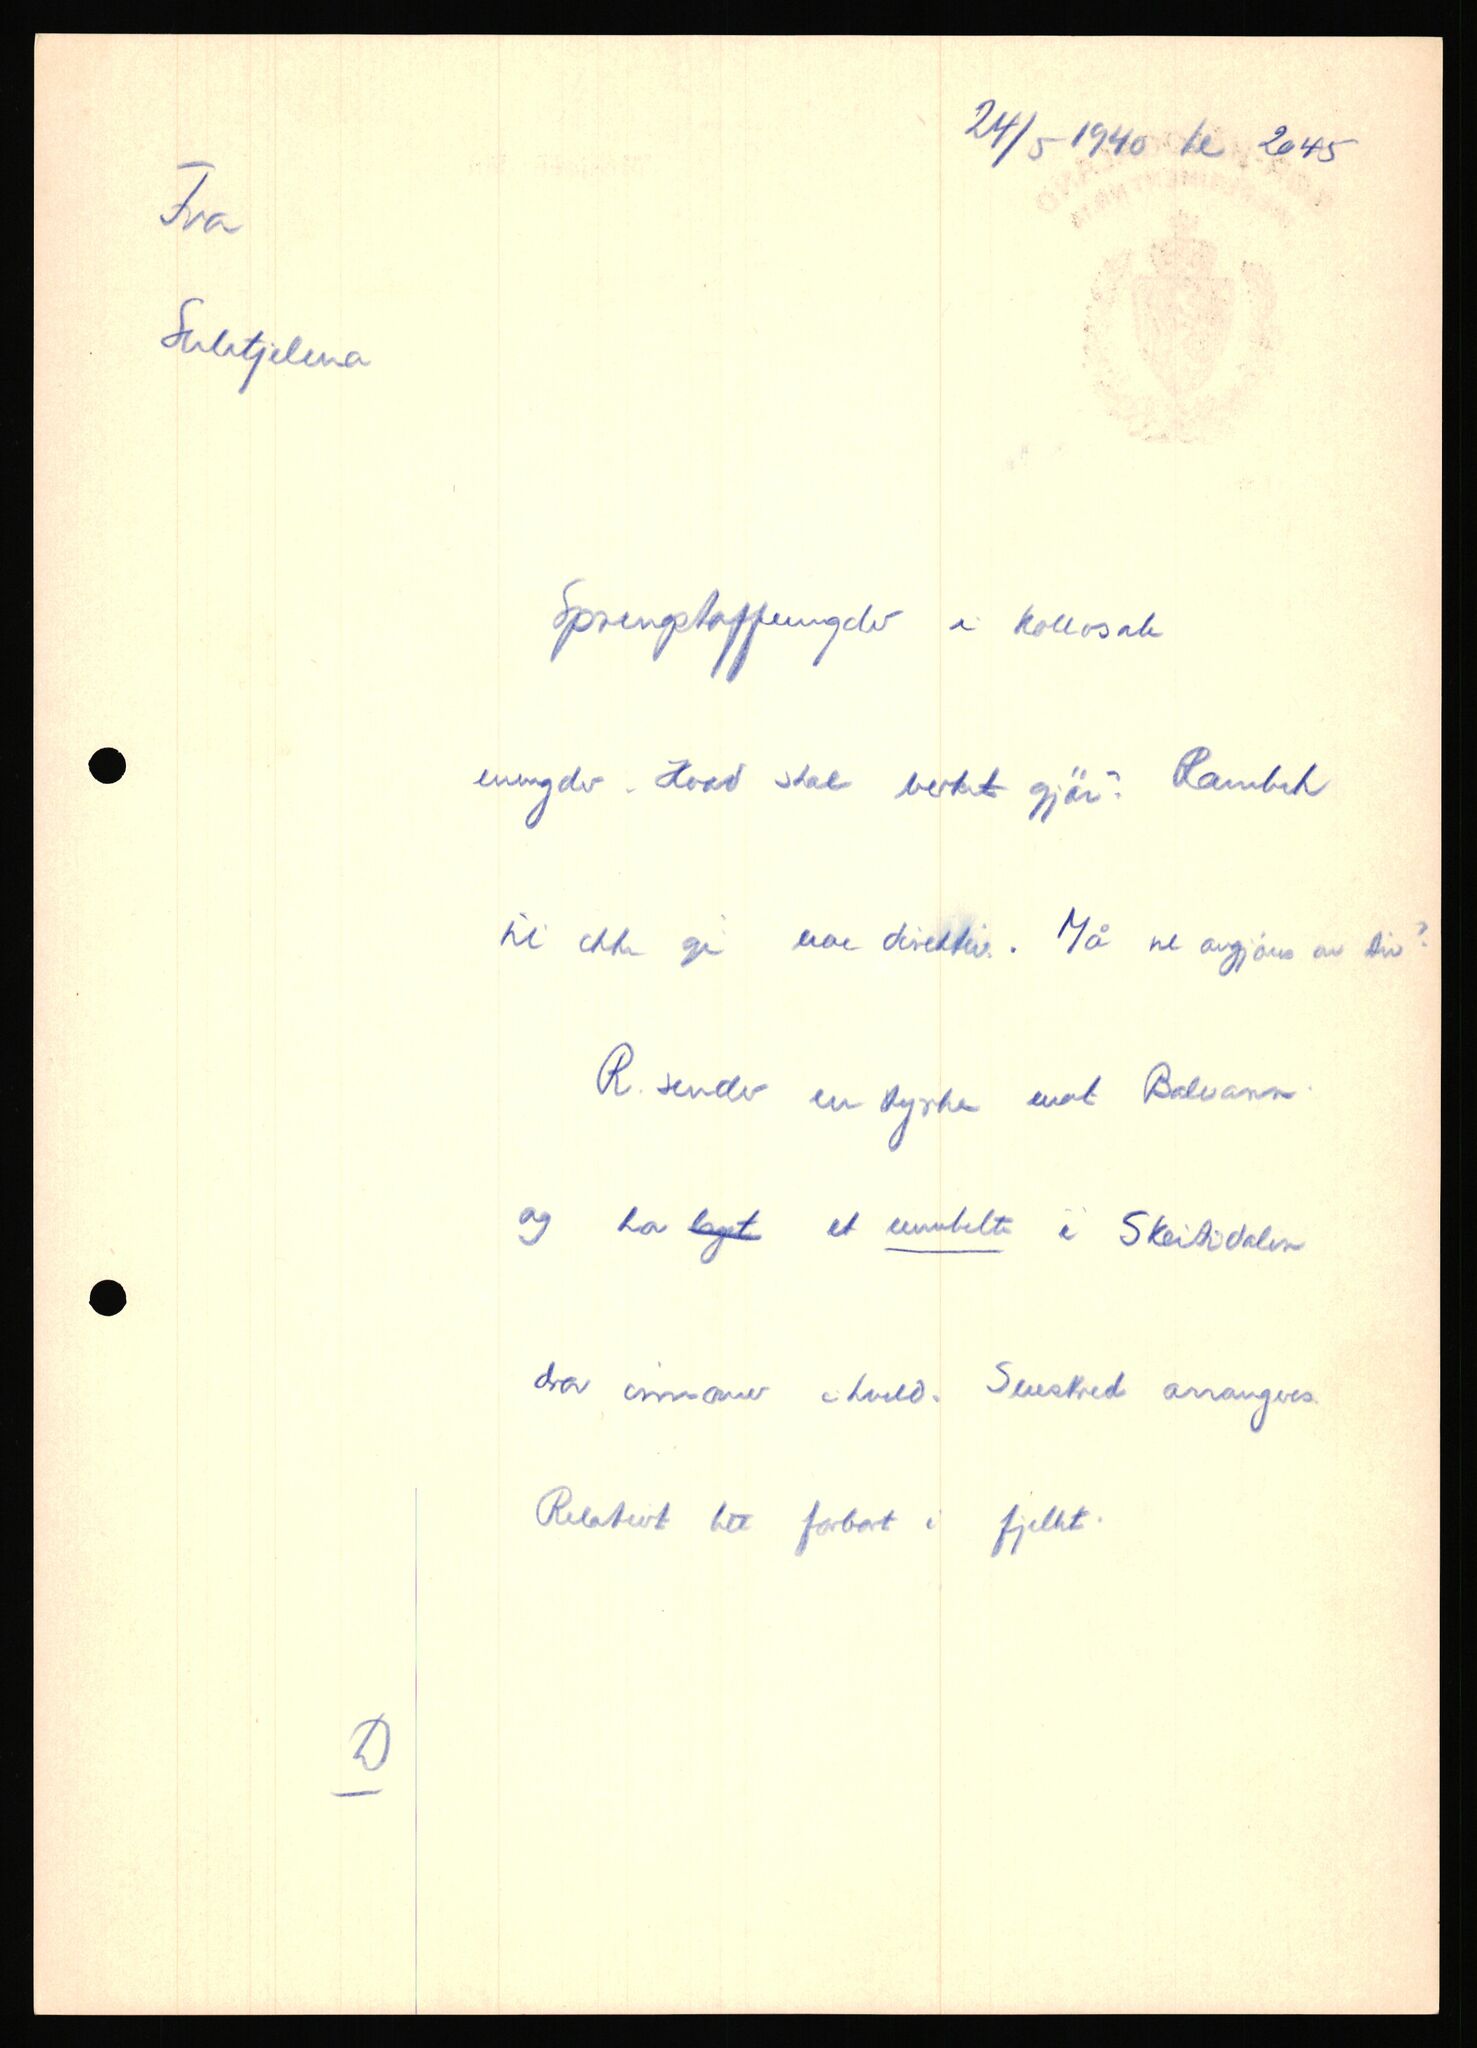 24/5-1940 kl 2045
Fra
Sulitjelma
Sprengstoffmengder i kollosale
mengder. Hvad skal verket gjöre? Rambek
vil ikke gi noe direktiv. Må vel avgjöres av Div?
R. sender en styrke mot Balvann.
og har lagt et minebelte i Skeitidalen
drar innover i kveld. Sneskred arrangeres.
Relativt lett farbart i fjellet.
D